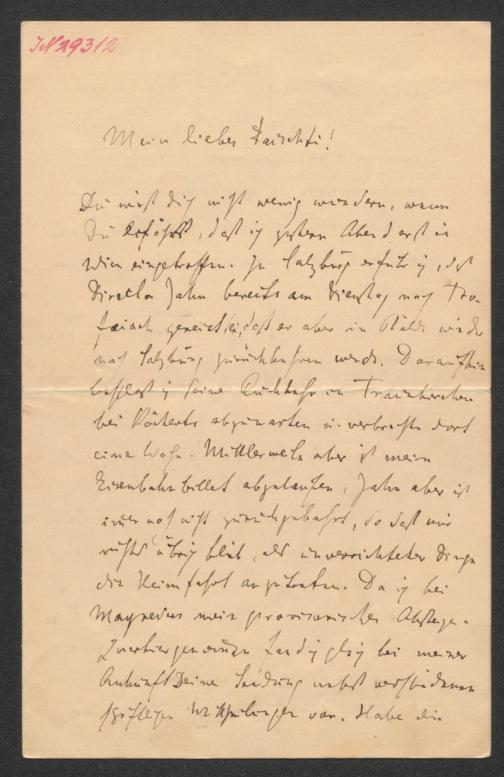 IN 29312
Mein lieber
Du wirst dich nicht wenig wundern, wenn
Du erfährst, daß ich gestern Abend erst in
Wien eingetroffen. In Salzburg erfuhr ich, daß
Director Jahn bereits am Dienstag nach Tro-
faiach gereist sei, daß er aber in Bälde wieder
nach Salzburg zurückkehren werde. Daraufhin
beschloß ich seine Rückkehr in Traunkirchen
bei Köcherts abzuwarten u. verbrachte dort
eine Woche. Mittlerweile aber ist mein
Eisenbahnbillet abgelaufen, Jahn aber ist
immer noch nicht zurückgekehrt, so daß mir
nichts übrig blieb, als unverrichteter Dinge
die Heimfahrt anzutreten. Da ich bei
mein provisorisches Absteige-
Quartier genommen fand ich gleich bei meiner
Ankunft Deine Sendung nebst verschiedenen
vor. Habe die